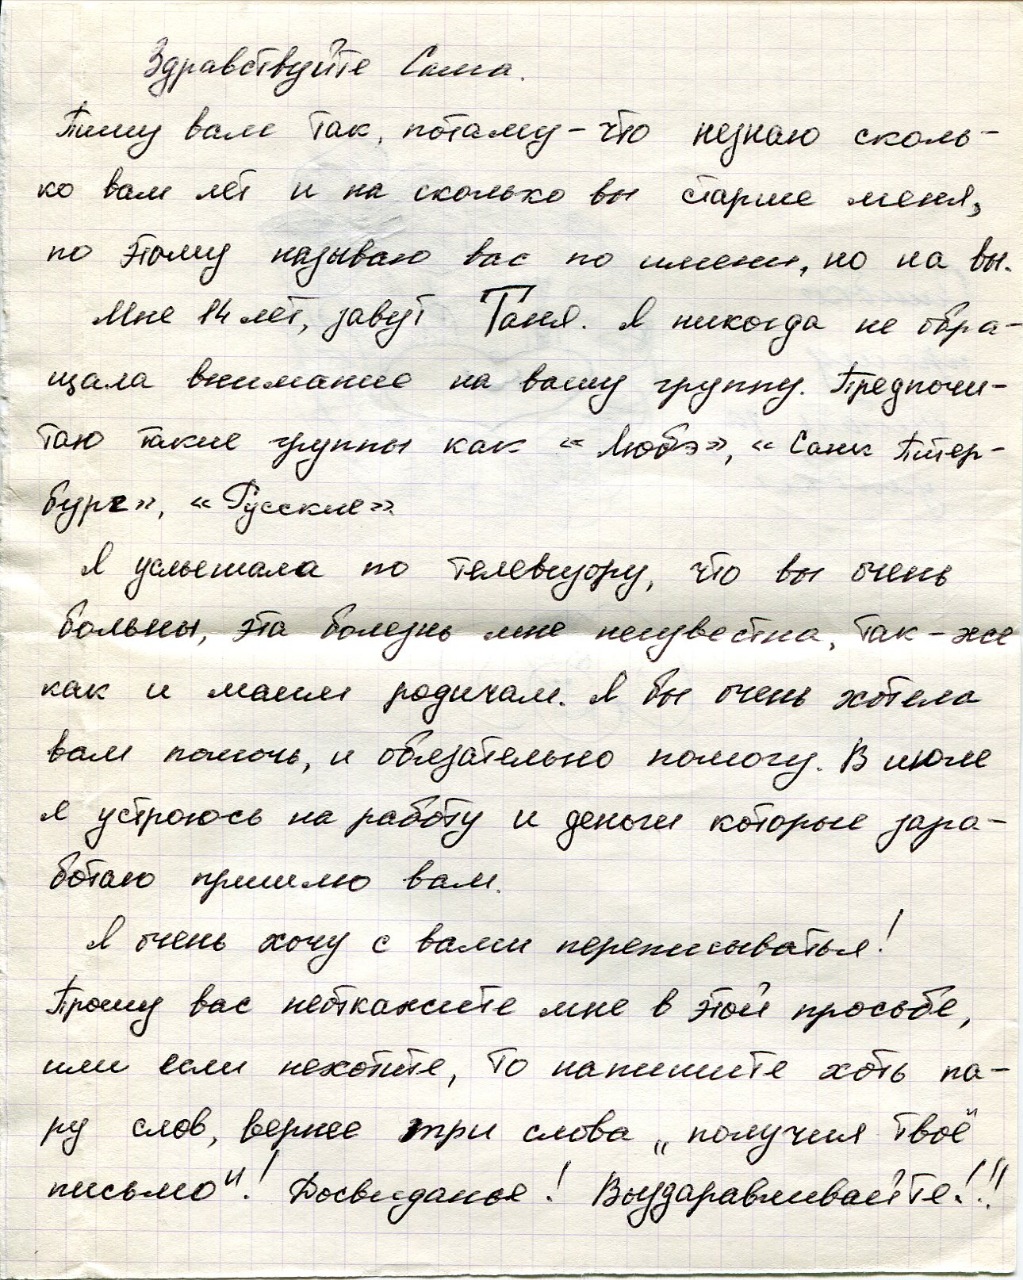 Здравствуйте Саша.
Пишу вам так, потаму-что незнаю сколь-
ко вам лет и на сколько вы старше меня,
по этому называю вас по имени, но на вы.
Мне 14 лет, завут Таня. Я никогда не обра-
щала внимание на вашу группу. Предпочи-
таю такие группы как «Любэ», «Санк Питер-
бург», «Русские»
Я услышала по телевизору, что вы очень
больны, эта болезнь мне неизвестна, так-же
как и маим родичам. Я бы очень хотела
вам помочь, и обязательно помогу. В июле
я устроюсь на работу и деньги которые зара-
ботаю пришлю вам.
Я очень хочу с вами переписываться!
Прошу вас неоткажите мне в этой просьбе,
или если нехотите, то напишите хоть па-
ру слов, вернее три слова „получил твоё
письмо"! Досвиданье! Выздаравливайте!!!